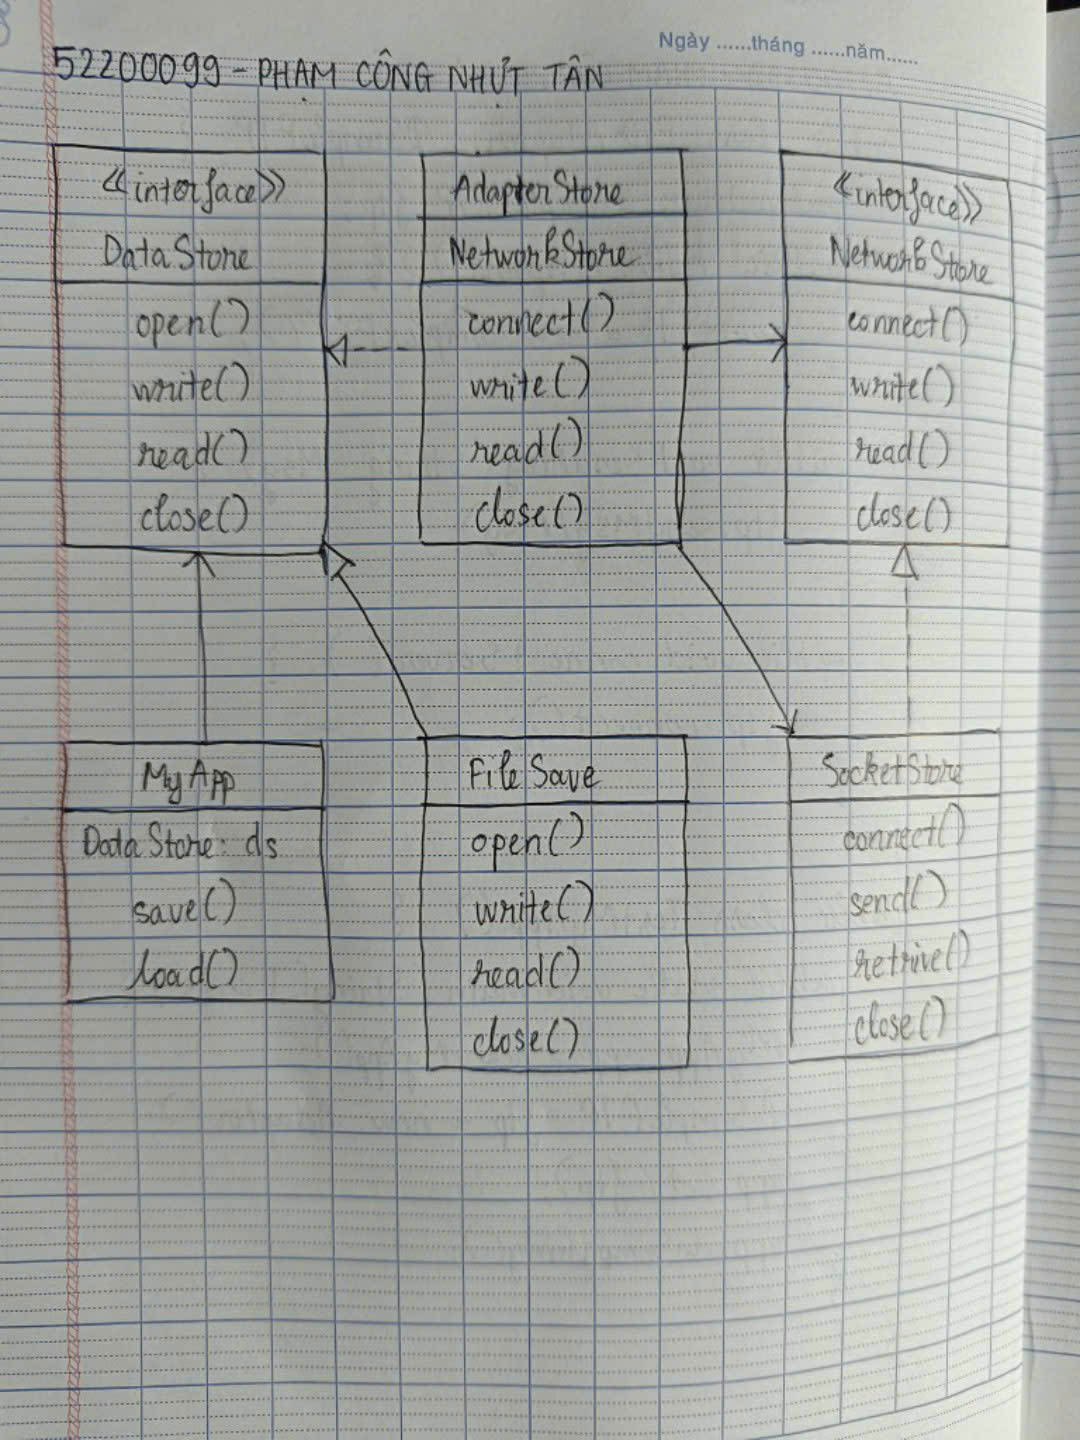 Ngày ......tháng ......năm......
52200099 - PHẠM CÔNG NHỰT TÂN
<<interface>>
DataStore
open()
write()
read()
close()
AdapterStore
NetworkStore
connect()
write()
read()
close()
<<interface>>
NetworkStore
connect()
write()
read()
close()
MyApp
DataStore: ds
save()
load()
FileSave
open()
write()
read()
close()
SocketStore
connect()
send()
retrive()
close()